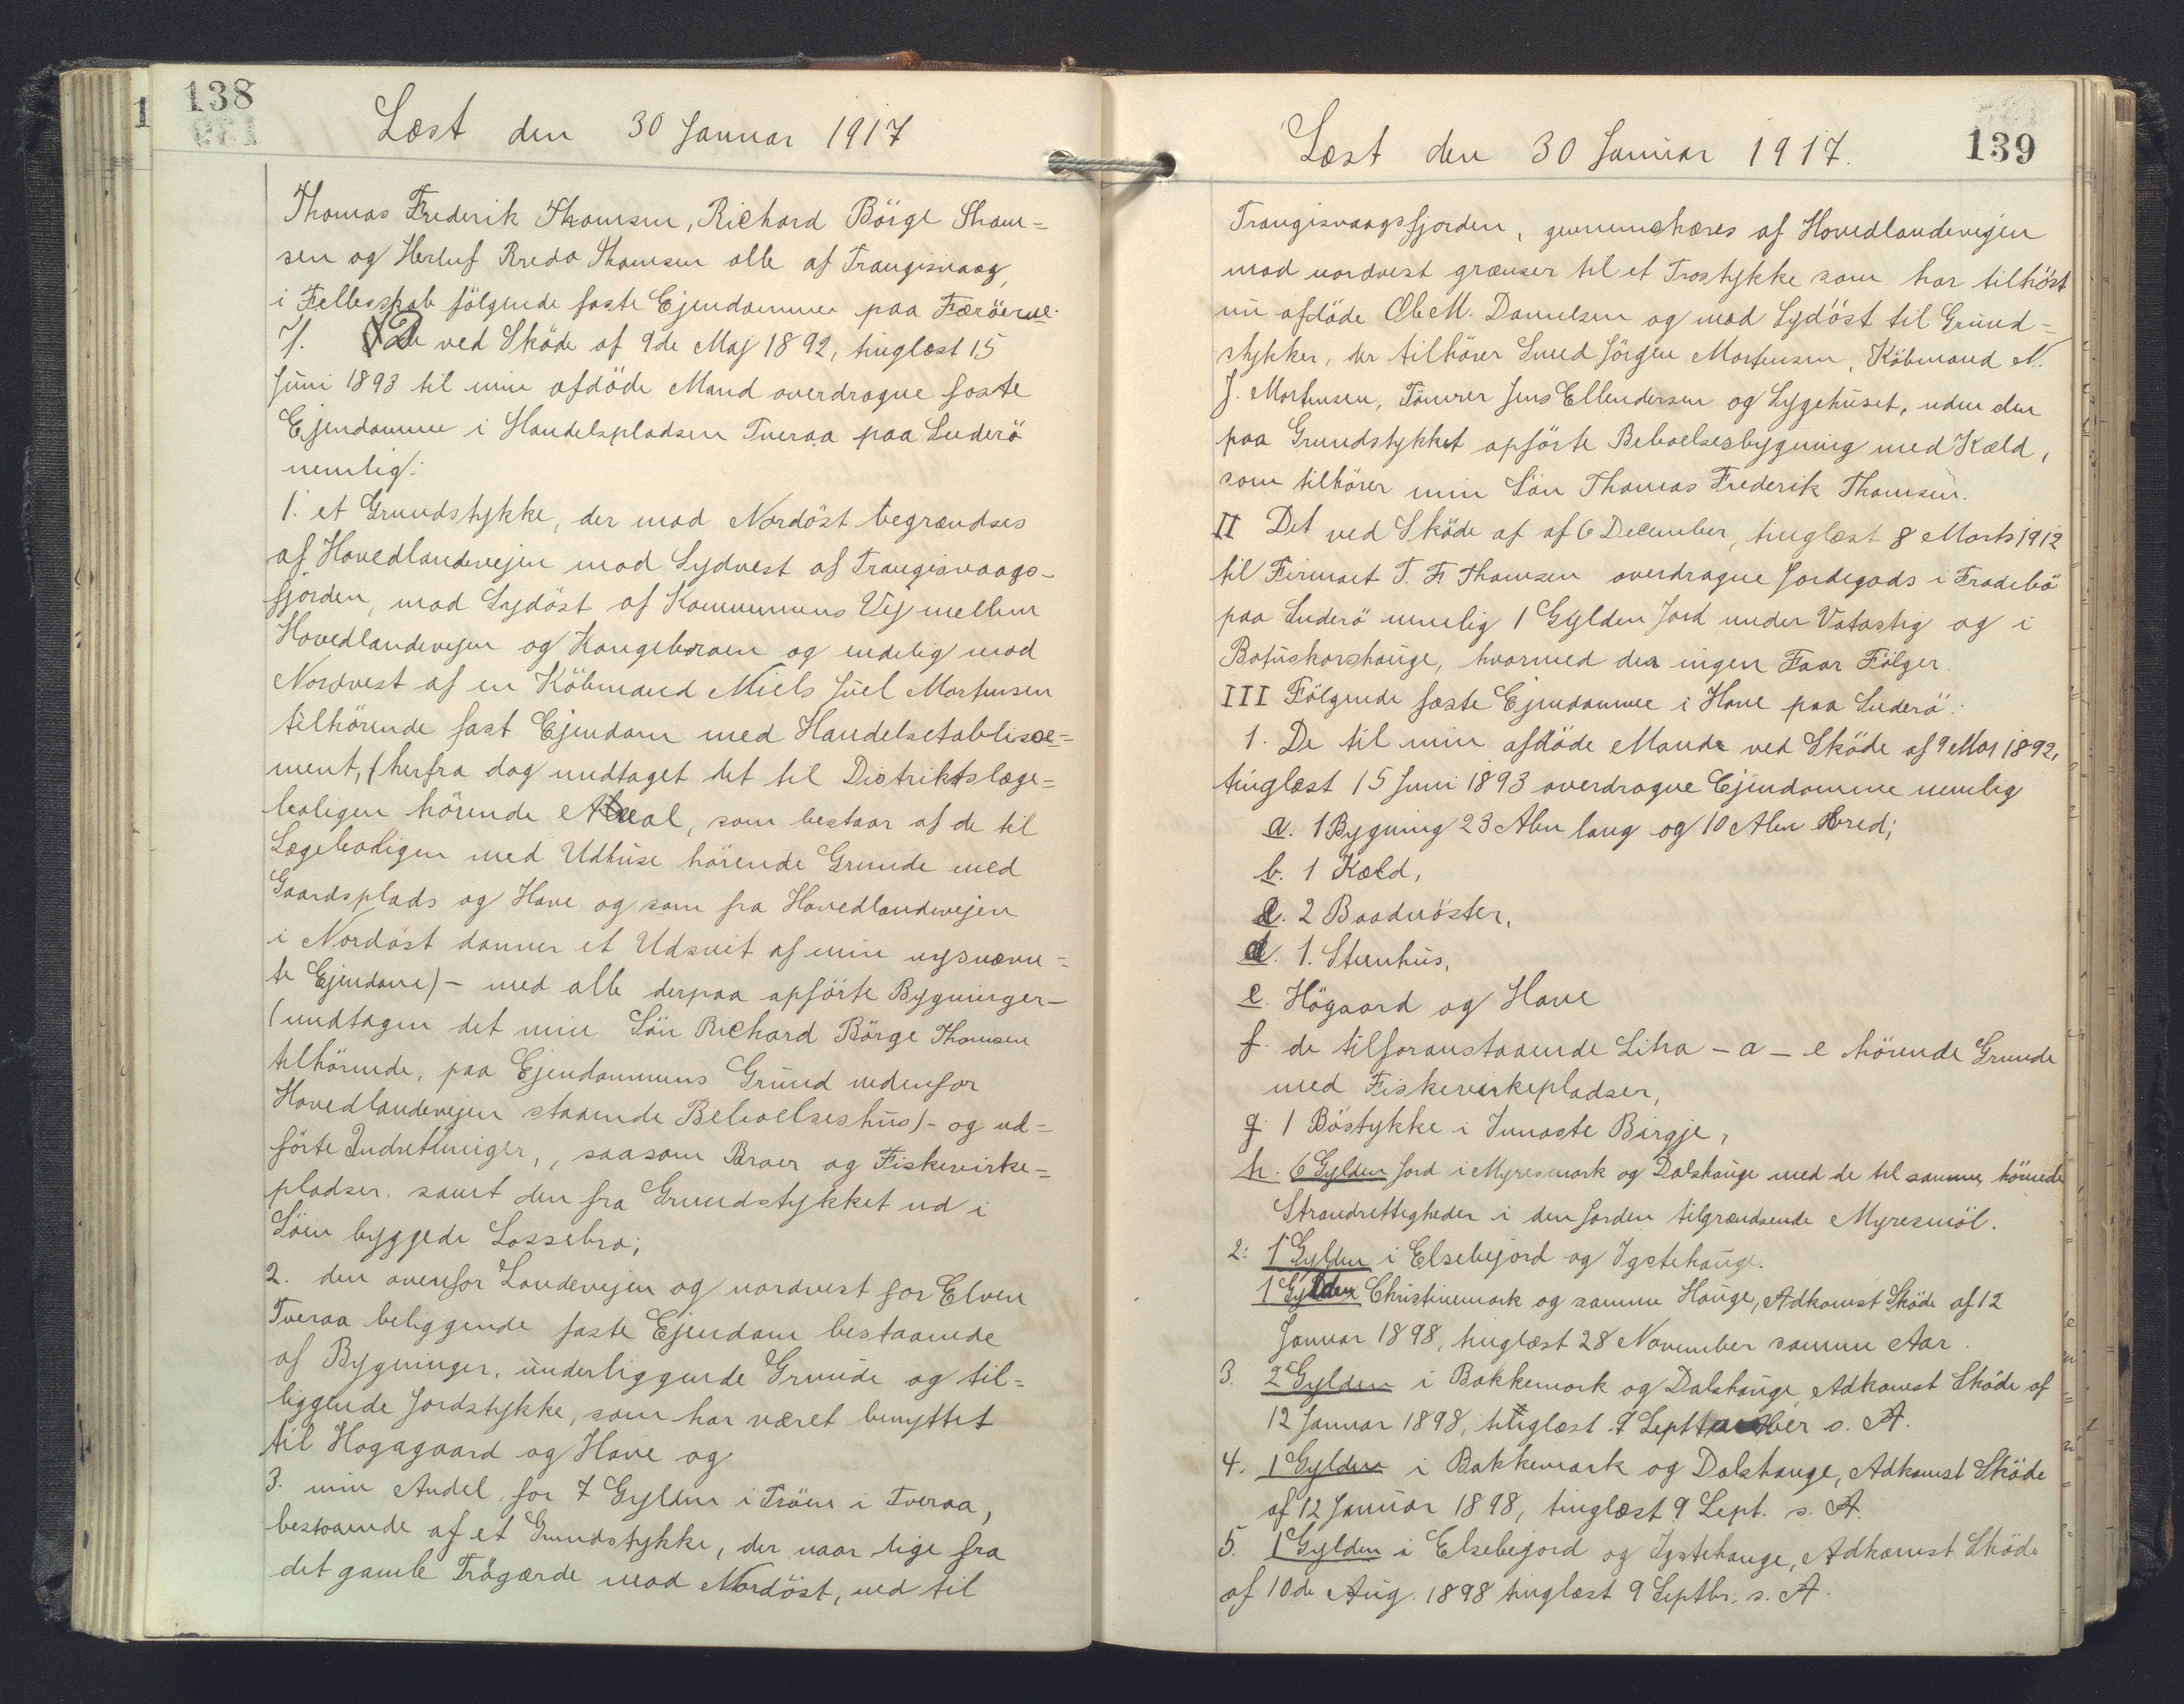 138
Læst den 30 Januar 1917
Thomas Frederik Thomsen, Richard Börge Thom=
sen og Herluf Bredo Thomsen alle af Trangisvaag,
i Fellesskab fölgende faste Ejendomme paa Færöerne.
I. De ved Sköde af 9de Maj 1892, tinglæst 15
Juni 1893 til min afdöde Mand overdragne faste
Ejendomme i Handelspladsen Tveraa paa Suderö
nemlig:
1. et Grundstykke, der mod Nordöst begrændses
af Hovedlandevejen mod Sydvest af Trangisvaags-
fjorden, mod Sydöst af Kommunens Vej mellem
Hovedlandevejen og Kongebroen og endelig mod
Nordvest af en Köbmand Niels Juel Mortensen
tilhörende fast Ejendom med Handelsetablisse=
ment, (herfra dog undtaget det til Distriktslæge=
boligen hörende Areal, som bestaar af de til
Lægeboligen med Udhuse hörende Grunde med
Gaardsplads og Have og som fra Hovedlandevejen
i Nordöst danner et Udsnit af min nysnævn=
te Ejendom) - med alle derpaa opförte Bygninger-
(undtagen det min Sön Richard Börge Thomsen
tilhörende, paa Ejendommens Grund nedenfor
Hovedlandevejen staaende Beboelseshus) - og ud=
förte Indretninger, , saasom Broer og Fiskevirke=
pladser. samt den fra Grundstykket ud i
Söen byggede Lossebro;
2. den ovenfor Landevejen og nordvest for Elven
Tveraa beliggende faste Ejendom bestaaende
af Bygninger, underliggende Grunde og til=
liggende Jordstykke, som har været benyttet
til Hogagaard og Have og
3. min Andel for 7 Gylden i Tröen i Tveraa,
bestaaende af et Grundstykke, der naar lige fra
det gamle Trögærde mod Nordöst, ned til
Læst den 30 Januar 1917.
139
Trangisvaagsfjorden, gennemskæres af Hovedlandevejen
mod nordvest grænser til et Trostykke som har tilhöst
nu afdöde Ole M. Danielsen og mod Sydöst til Grund=
stykker, der tilhörer Snud Jörgen Mortensen, Köbmand N.
J. Mortensen, Tömrer Jens Ellendersen og Sygehuset, uden den
paa Grundstykket opförte Beboelsesbygning med Kæld,
som tilhörer min Sön Thomas Frederik Thomsen.
II Det ved Sköde af af 6 December, tinglæst 8 Marts 1912
til Firmaet T. F. Thomsen overdragne Jordegods i Frodebö
paa Suderö nemlig 1 Gylden Jord under Vatastig og i
Botuskorshauge, hvormed der ingen Faar Fölger.
III Fölgende faste Ejendomme i Hove paa Suderö:
1. De til min afdöde Mand ved Sköde af 9 Maj 1892,
tinglæst 15 Juni 1893 overdragne Ejendomme nemlig
a. 1 Bygning 23 Alen lang og 10 Alen bred;
b. 1 Kæld,
c. 2 Baadnöster,
d. 1. Stenhus,
e. Högaard og Have
f. de tilforanstaaende Litra - a - e hörende Grunde
med Fiskevirkepladser,
g. 1 Böstykke i Innaste Birgje,
h. 6 Gylden Jord i Myresmark og Dalshauge med de til samme hörende
Strandrettigheder i den Jorden tilgrændsende Myresmöl.
2: 1 Gylden i Elsebejord og Igstehauge.
1 Gylden Christinemark og samme Hauge, Adkomst Sköde af 12
Januar 1898, tinglæst 28 November samme Aar.
3. 2 Gylden i Bakkemark og Dalshauge, Adkomst Sköde af
12 Januar 1898, tinglæst 9 September s. A.
4. 1 Gylden i Bakkemark og Dalshauge, Adkomst Sköde
af 12 Januar 1898, tinglæst 9 Sept. s. A.
5. 1 Gylden i Elsebejord og Igstehauge, Adkomst Sköde
af 10de Aug. 1898 tinglæst 9 Septbr. s. A.